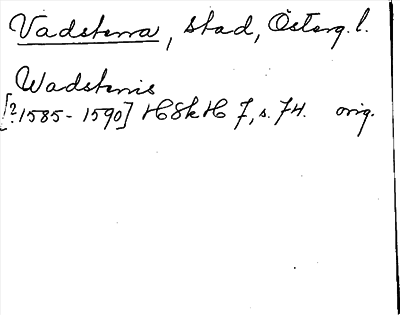 Vadstena, stad, Österg. l.
Wadstenis
[?1585-1590] HSkH 7, s. 74. orig.